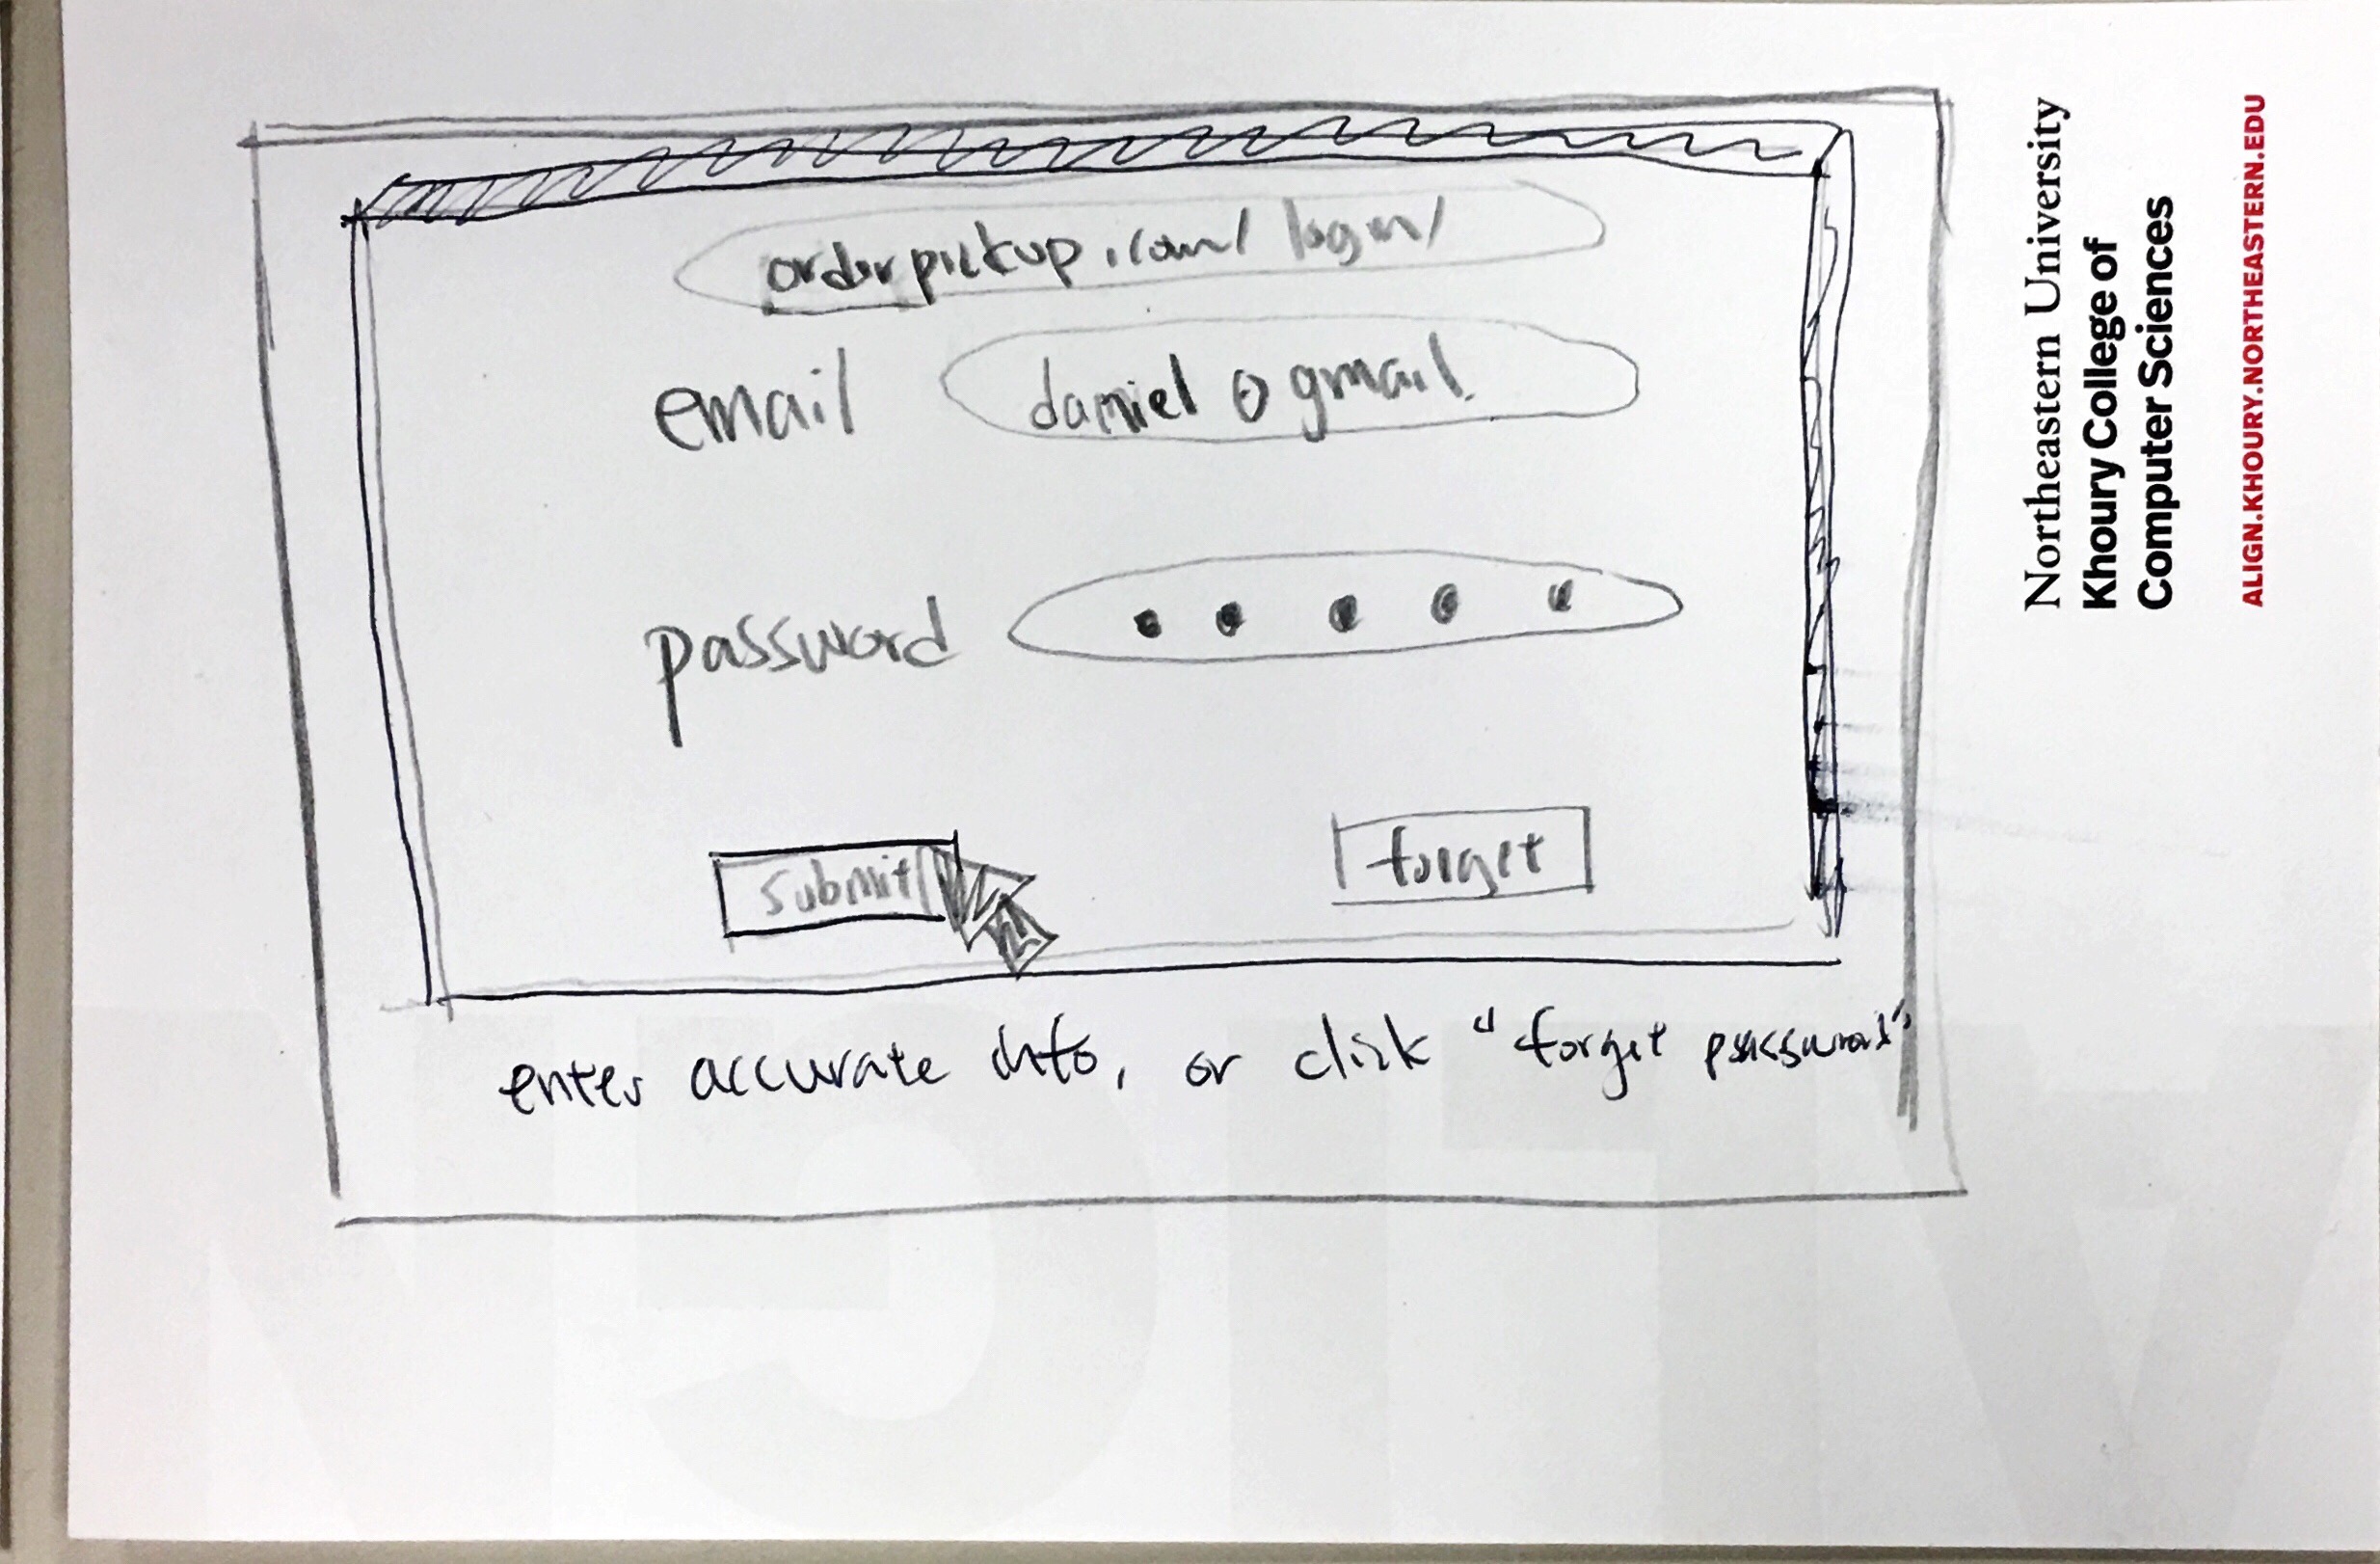 orderpickup.com/login/
email daniel@gmail.
password
submit forget
enter accurate info, or click "forget password"
Northeastern University
Khoury College of
Computer Sciences
ALIGN.KHOURY.NORTHEASTERN.EDU
ALIGN